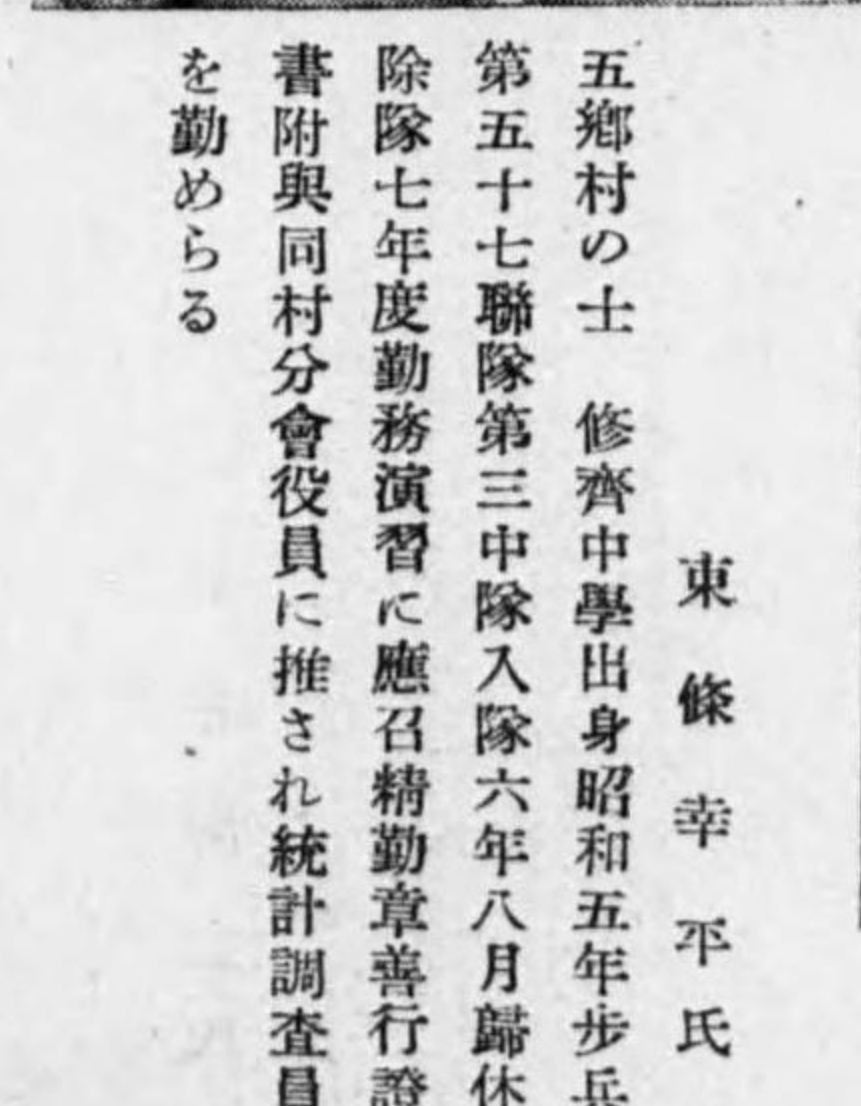 東條幸平氏
五鄕村の士　修齊中學出身昭和五年步兵
第五十七聯隊第三中隊入隊六年八月歸休
除隊七年度勤務演習に應召精勤章善行證
書附與同村分會役員に推され統計調査員
を勤めらる